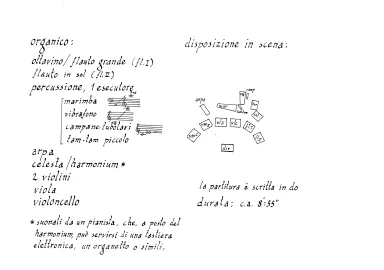 organico:
ottavino / flauto grande (fl. I)
flauto in sol (fl. II)
percussione, 1 esecutore
marimba
vibrafono
campane tubolari
tam-tam piccolo
arpa
celesta / harmonium *
2 violini
viola
violoncello
* suonati da un pianista, che, a posto del
harmonium, può servirsi di una tastiera
elettronica, un organetto o simili.
disposizione in scena:
arpa
dir
la partitura è scritta in do
durata: c.a. 8'55"